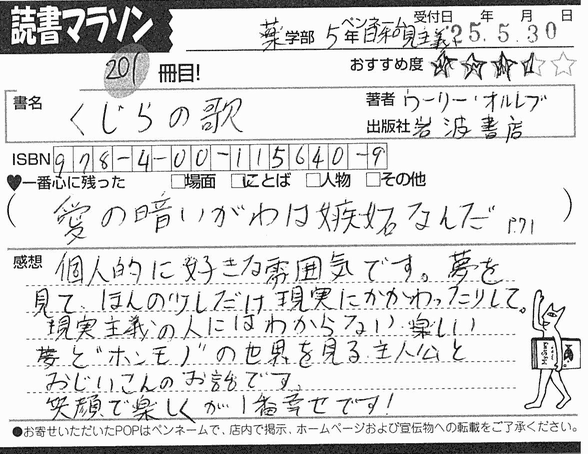 読書マラソン
201 冊目!
薬学部 5年 ペンネーム 日和見主義
受付日 年 月 日
25.5.30
おすすめ度 ★★★☆☆
書名 くじらの歌
著者 ウーリー・オルレブ
出版社 岩波書店
ISBN 978-4-00-115640-9
♥一番心に残った □場面 □ことば □人物 □その他
(愛の暗いがわは嫉妬なんだ P.71)
感想 個人的に好きな雰囲気です。夢を
見て、ほんの少しだけ現実にかかわったりして。
現実主義の人にはわからない楽しい
夢と"ホンモノ"の世界を見る主人公と
おじいさんのお話です。
笑顔で楽しくが1番幸せです!
●お寄せいただいたPOPはペンネームで、店内で掲示、ホームページおよび宣伝物への転載をご了承ください。